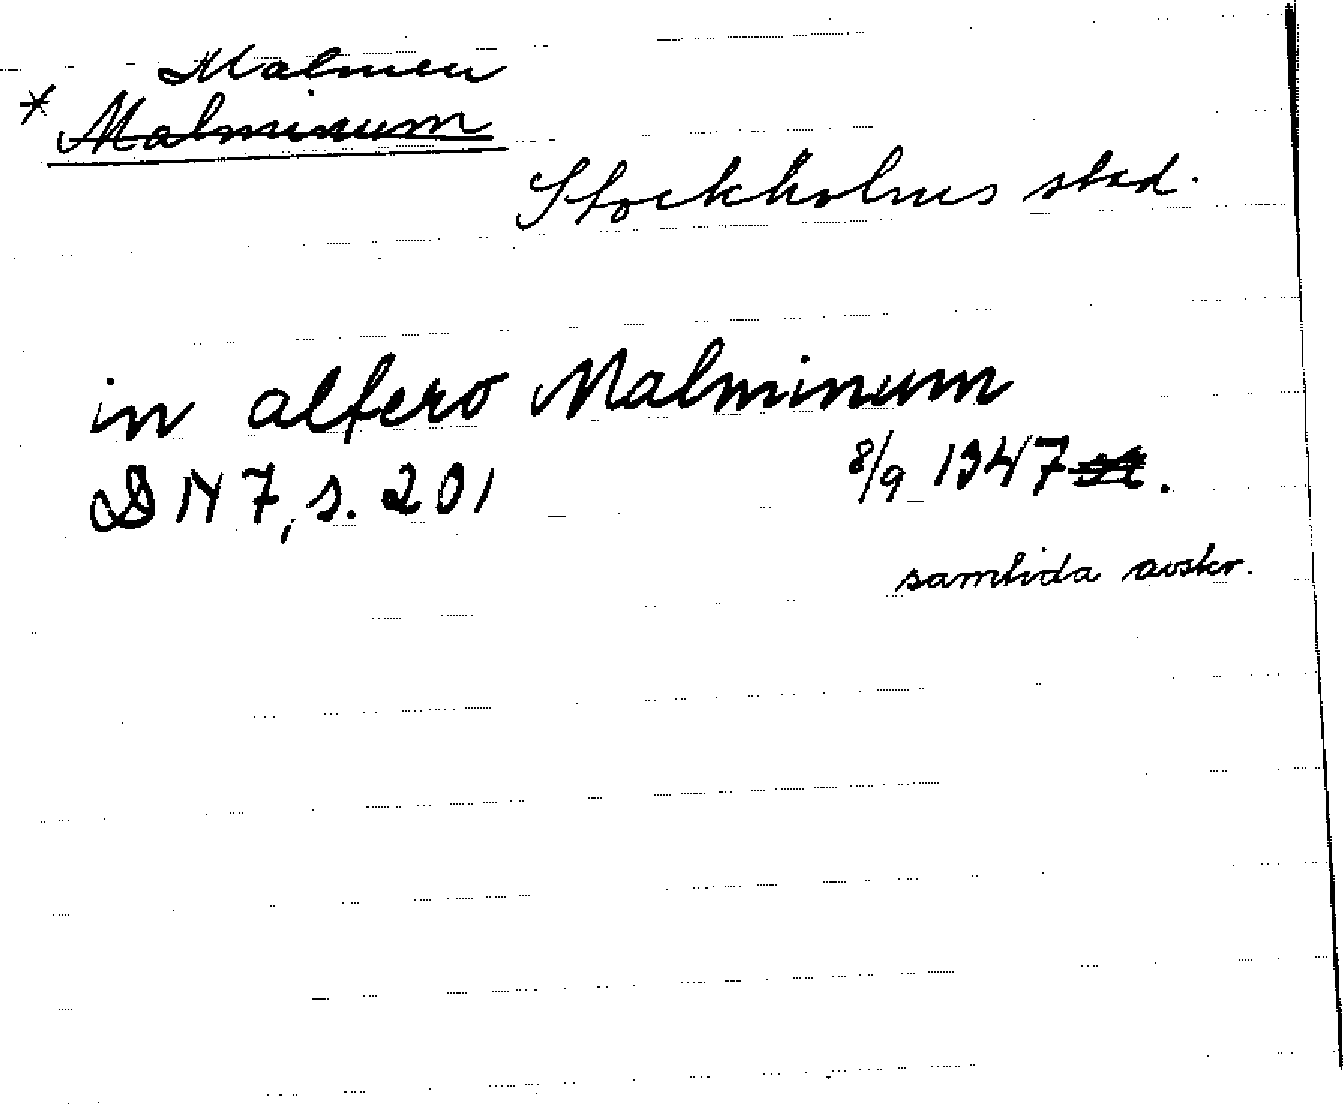 Malmen
* Malminum
Stockholms stad.
in altero Malminum
DN 7, s. 201 8/9 1347.
samtida avskr.